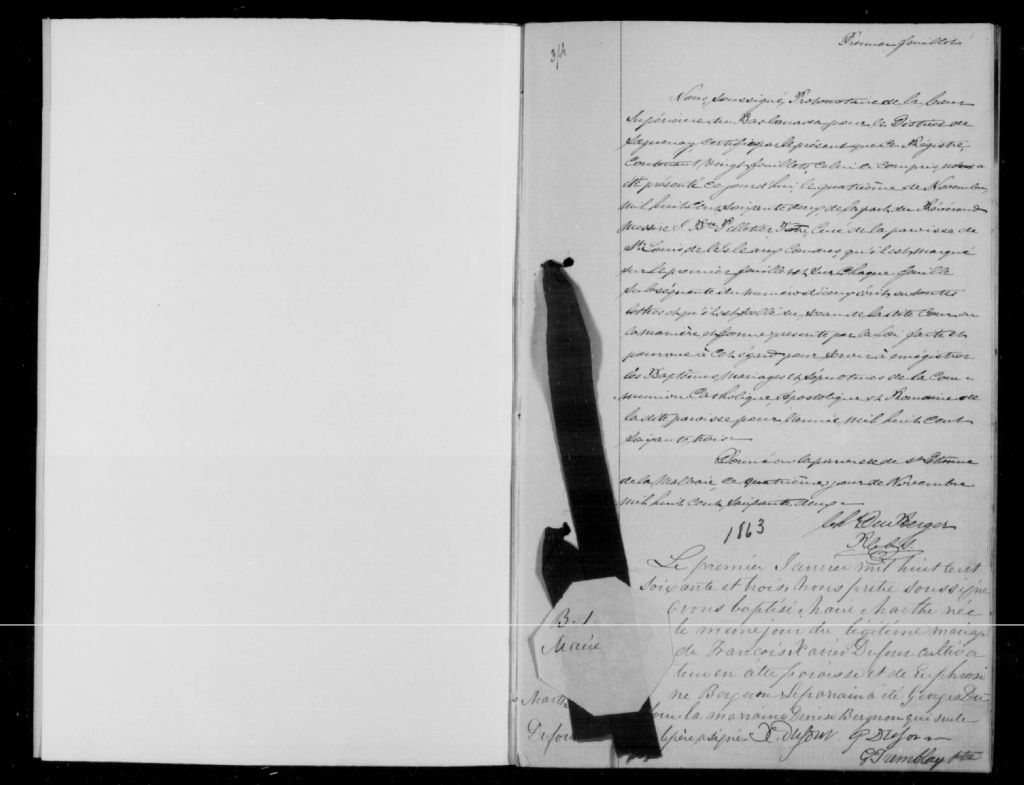 Premier feuillet
Nous, soussigné, Protonotaire de la Cour
Supérieure du Bas Canada, pour le District de
Saguenay, certifie par le présent que ce Régistre,
Contenant Vingt feuillets, celui ci compris, nous a
été présenté ce jourd'hui, le quatrième de Novembre
mil huit cent soixante deux, de la part du Révérend
Messire J. Bte Pelletier Ptre, Curé de la paroisse de
St Louis de l'Isle aux Coudres, qu'il est Marqué
sur le premier feuillet et sur chaque feuille
subséquente du numéro d'iceux écrit en toutes
lettres et qu'il est scellé du sceau de la dite Cour en
la manière et forme prescrite par la loi faite et
pourvue à cet égard pour servir à enrégistrer
les Baptêmes, Mariages et Sépultures de la Com-
munion Catholique, Apostolique et Romaine de
la dite paroisse pour l'année mil huit cent
soixante trois
Donné en la paroisse de St Etienne
de la Malbaie, ce quatrième jour de Novembre
mil huit cent soixante deux
DuBerger
1863
Le premier Janvier mil huit cent
soixante et trois, Nous prêtre soussigné
avons baptisé Marie Marthe née
le même jour du légitime mariage
de François Xavier Dufour cultiva
teur en cette paroisse et de Euphrosi
ne Bergeron. Le parrain a été Georges Du
four la marraine Denise Bergeron qui seule
le père a signé X. Dufour G Dufour
G Tremblay Ptre
B. 1
Marie
Marthe
Dufour